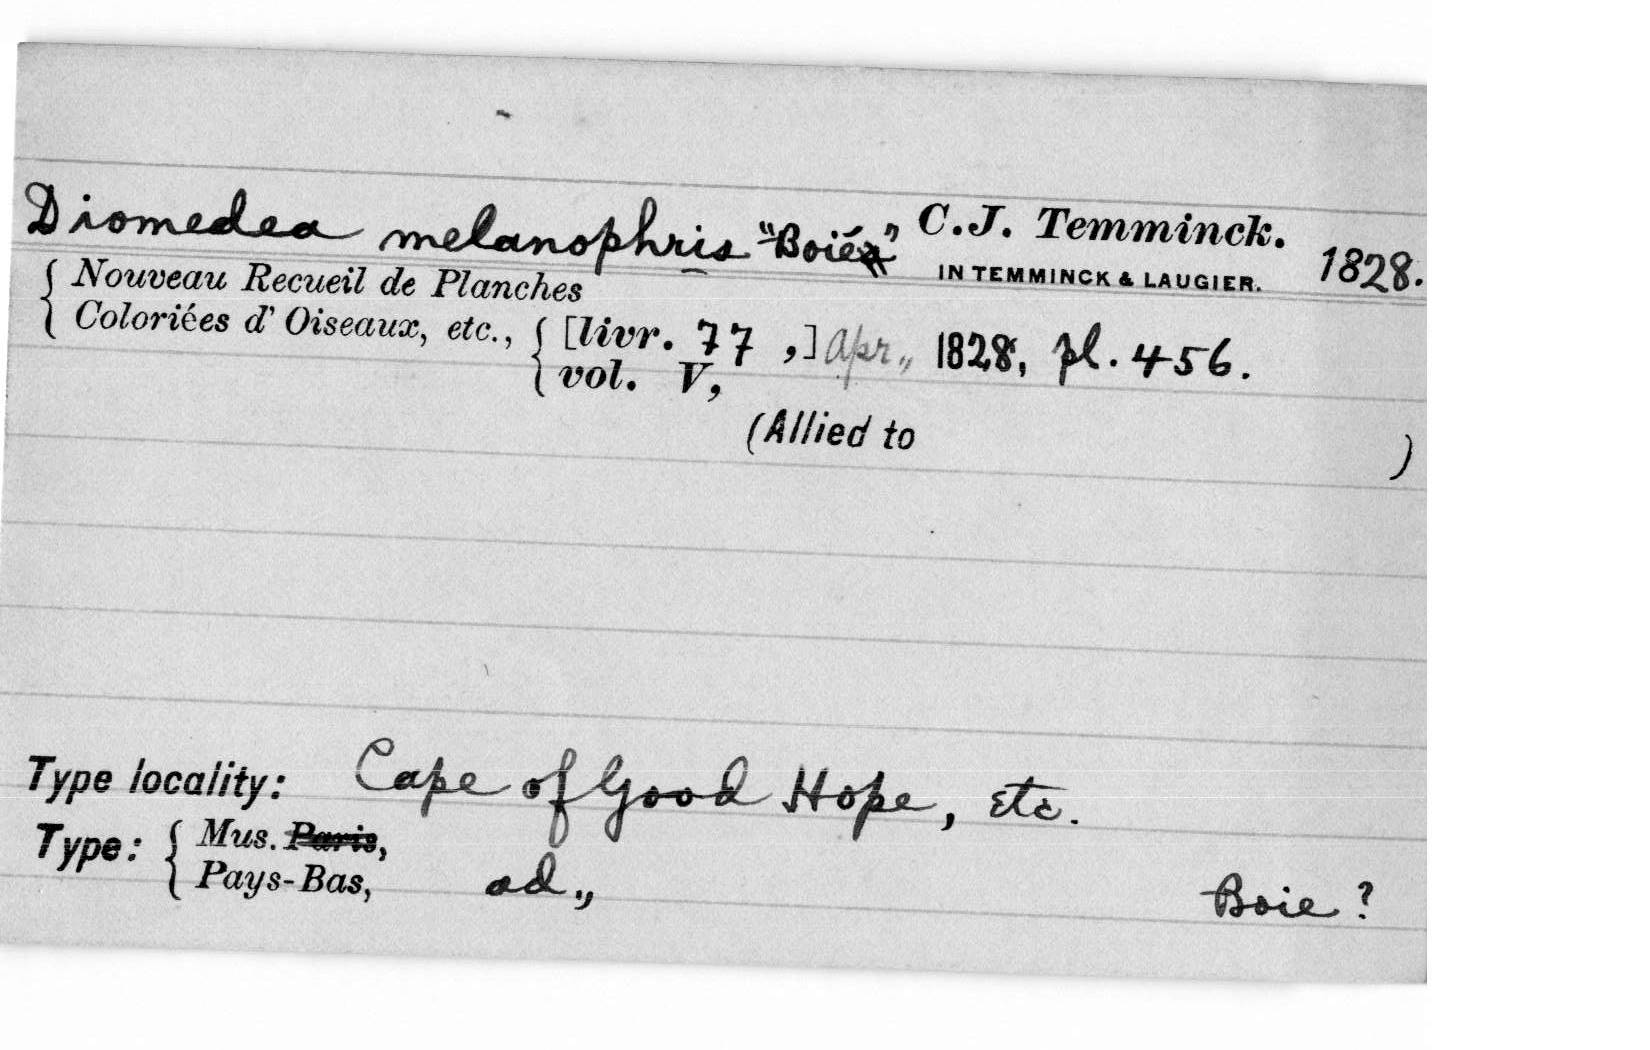 Diomedea melanophris "Boié" C.J. Temminck. 1828.
IN TEMMINCK & LAUGIER.
Nouveau Recueil de Planches
Coloriées d' Oiseaux, etc., [livr. 77 ,] apr., 1828, pl. 456.
vol. V,
(Allied to )
Type locality: Cape of Good Hope, etc.
Type: Mus. Paris,
Pays-Bas, ad., Boie ?